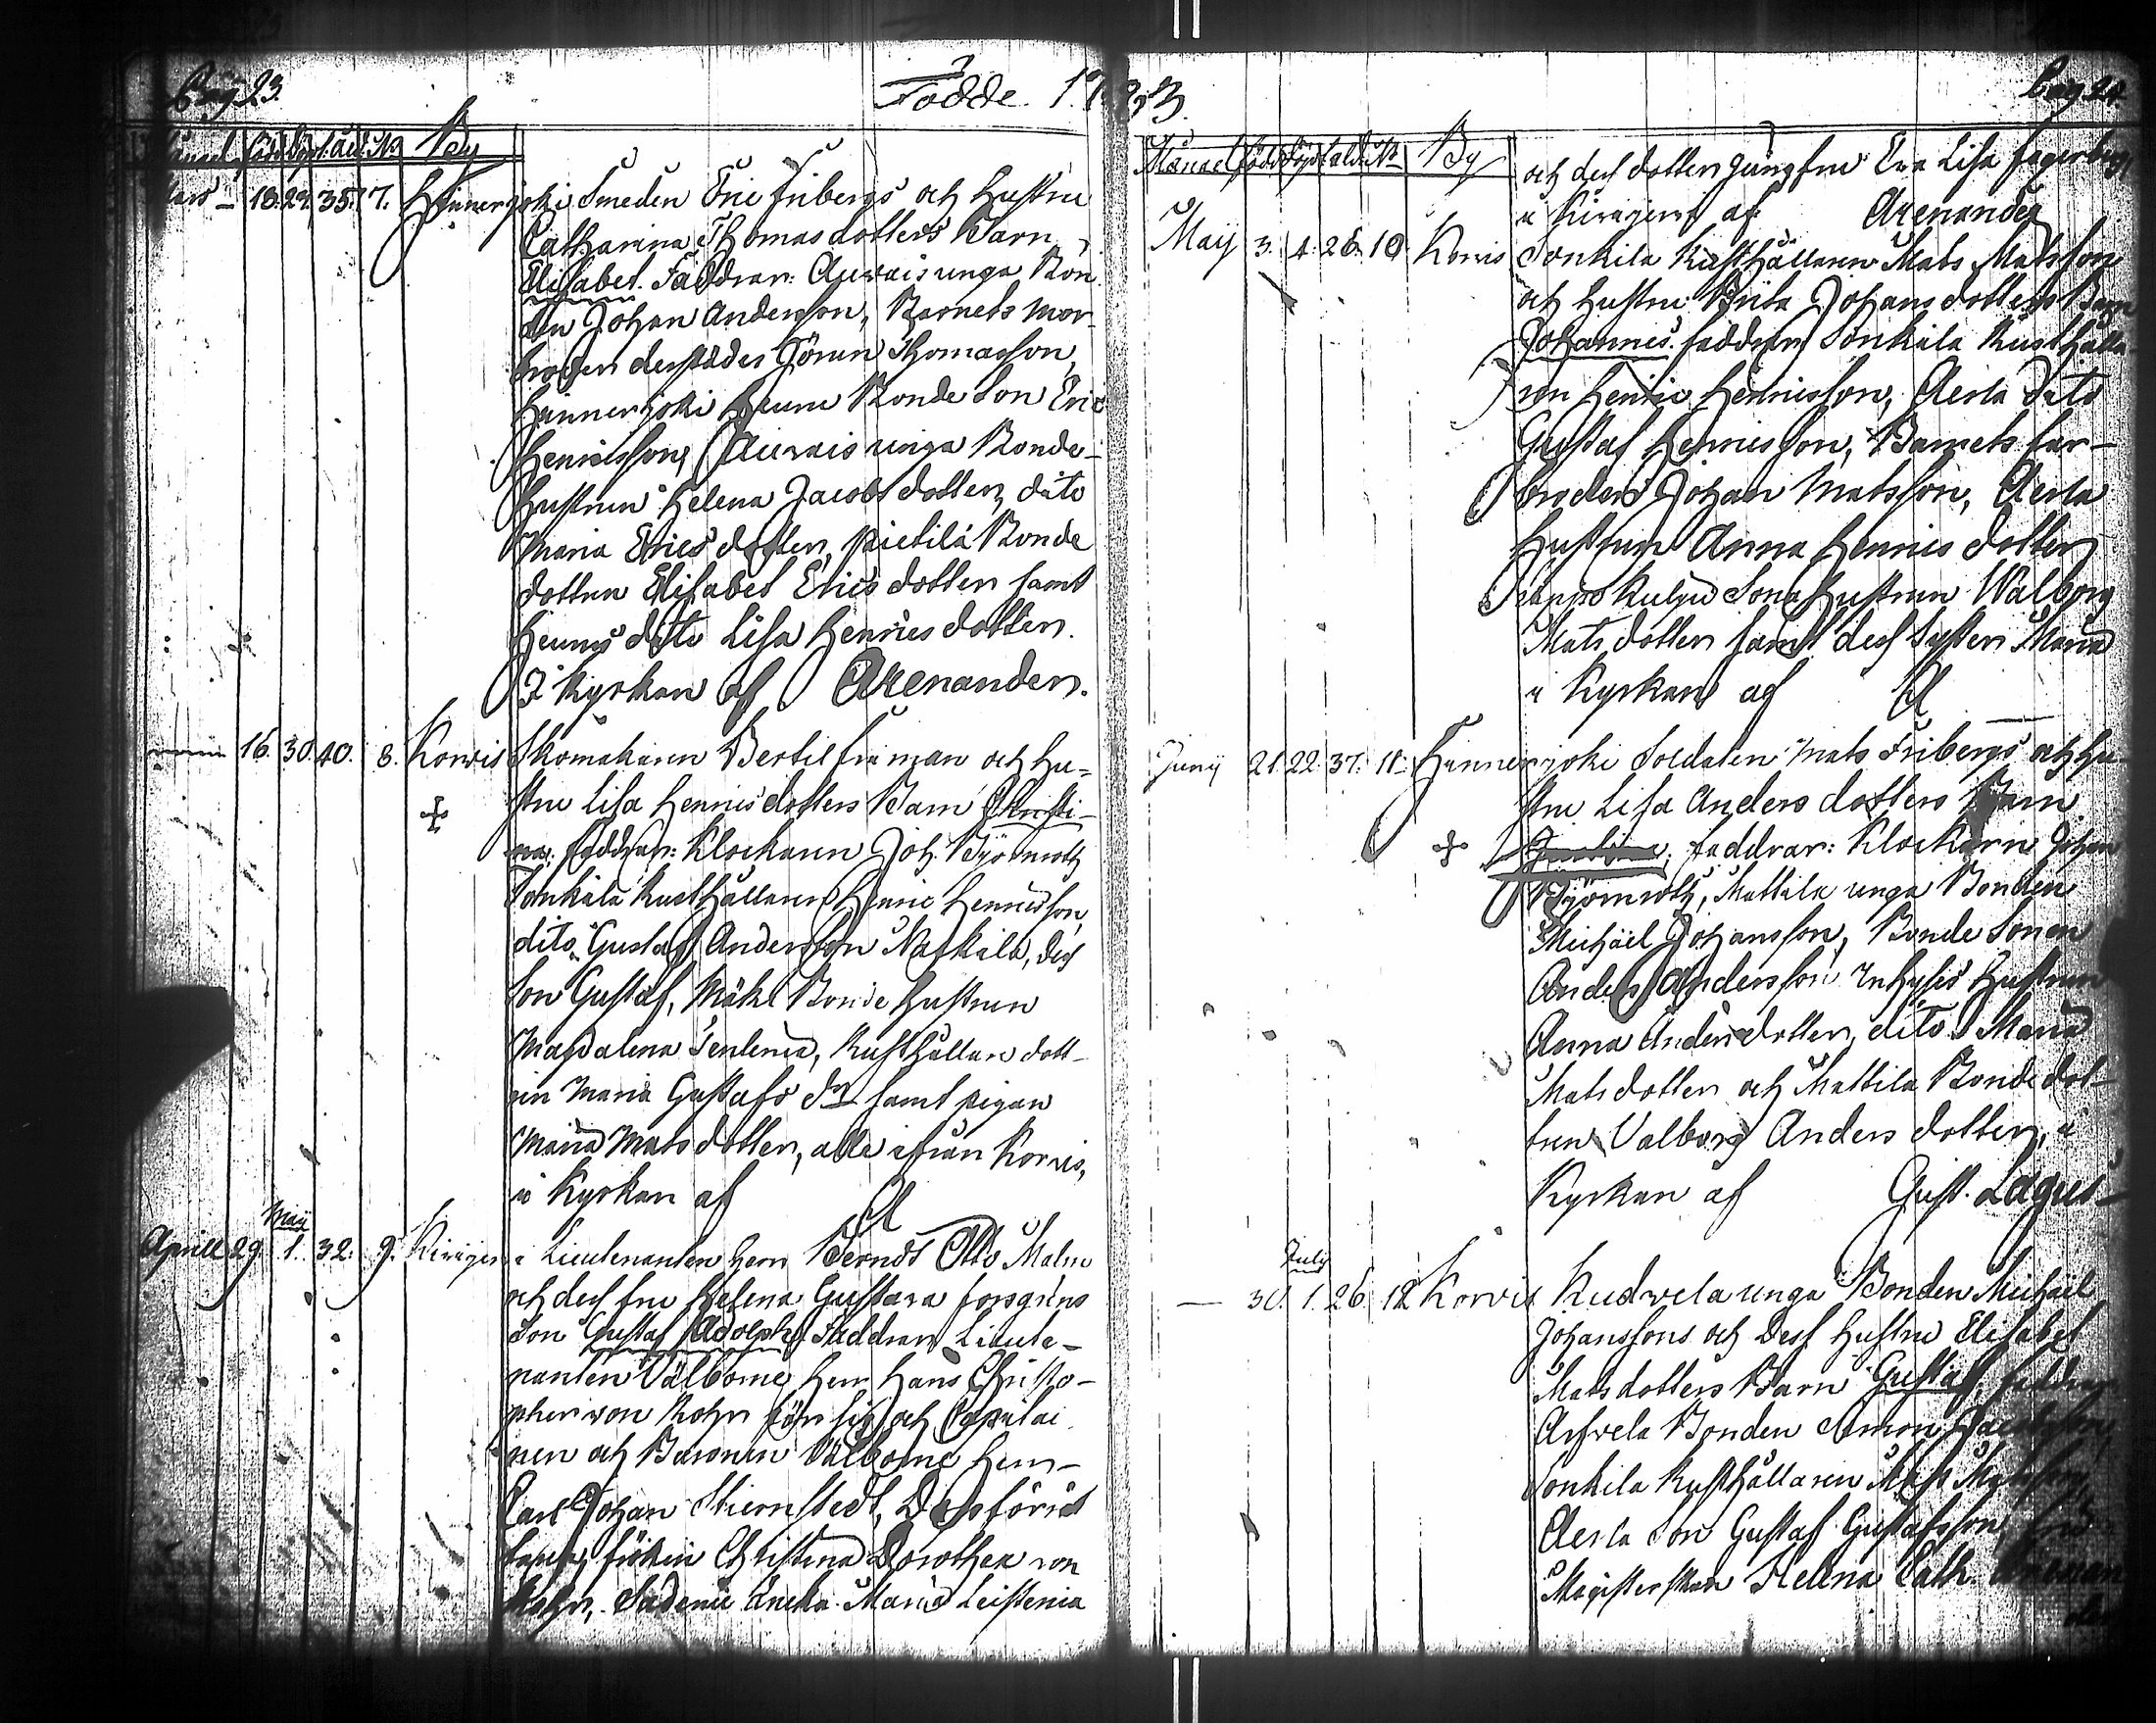 Pag 23.
Födde. 17
Månad född döpt åld. No By
Mars 18. 24. 35. 7. Hinnerjoki Smeden Eric Fribergs och hustru
Catharina Thomasdotters Barn
Elisabet. Faddrar: Auvais unga Bon
den Johan Andersson, Barnets mor
broder derstädes Thomasson,
Hinnerjoki Bonde Son Eric
Henricsson, Auvais unga Bonde
hustrun Helena Jacobs dotter, dito
Maria Erics dotter, Bonde
dottren Elisabet Erics dotter samt
dito Lisa Henrics dotter.
I Kyrkan af Arenander.
16. 30. 40. 8. Korvis Skomakaren Bertil och hu=
stru Lisa Henrics dotters Barn Christi-
na. Faddrar: Klockaren Joh. Björnroth
Sonkila Rusthållaren Henric Henricsson,
dito Gustaf Andersson, des
Son Gustaf, Bonde hustrun
Magdalena, Rusthållare dott-
ren Maria Gustafs dr samt pigan
Maria Mats dotter, alle ifrån Korvis,
i Kyrkan af A
Maij
Aprill 29. 1. 32. 9. Lieutenanten Herr Berndt Otto Malm
och des fru Helena Gustava Forsgrens
Son Gustaf Adolph, Faddrar Lieute-
nanten Välborne Herr Hans Christo-
pher von Kohn för sig och Capitai
nen och Baronen Välborne Herr
Carl Johan Stiernstedt,
fröken Christina Dorothea von
Maria Leistenia
Pag 24.
Månad född döpt åld. No By
och des dotter Jungfru Eva Lisa Fagerberg
i af Arenander
Maij 3. 4. 26. 10 Korvis Sonkila Rusthållaren Mats Matsson
och hustru Brita Johans dotters Barn
Johannes. faddrar Sonkila Rusthålla-
ren Henric Henricsson, Aerla dito
Gustaf Henricsson, Barnets far-
broder Johan Matsson, Aerla
hustrun Anna Henrics dotter
Sona hustrun Walborg
Mats dotter samt des Syster Maria
i Kyrkan af A
Junij 21. 22. 37. 11 Hinnerjoki Soldaten Mats Fribergs och hu
stru Lisa Anders dotters Barn
faddrar: Klockaren Johan
Björnroth, Mattila unga Bonden
Michäel Johansson, Bonde Sonen
Anders Andersson Inhyses Hustrun
Anna Anders dotter, dito Maria
Mats dotter och Mattila Bonde dot-
tren Valborg Anders dotter, i
Kyrkan af Gust. Lagus
July
30. 1. 26. 12 Korvis Kudvela unga Bonden Michäel
Johanssons och Dess hustru Elisabet
Mats dotters Barn Gustaf, faddrar
Arfvela Bonden Simon
Sonkila Rusthållaren Mats Matsson,
Aerla Son Gustaf Gustafsson,
Magisterskan Helena Cath.